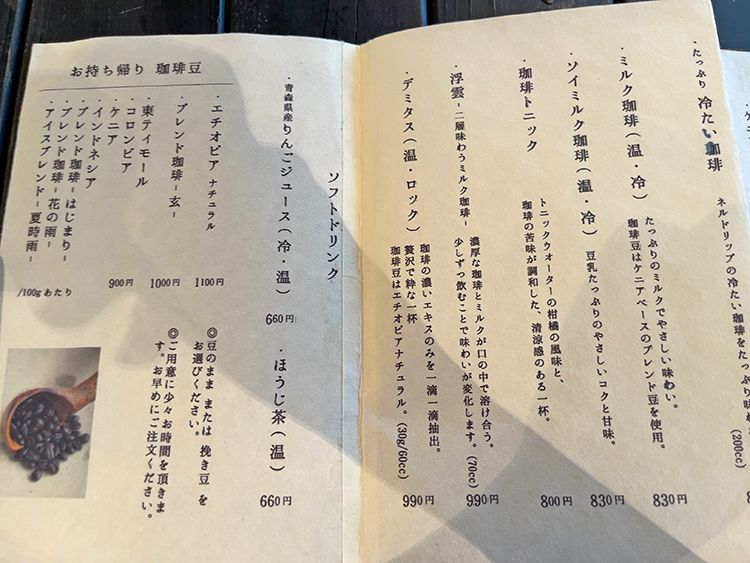 ・たっぷり 冷たい珈琲
ネルドリップの冷たい珈琲をたっぷり
(200cc)
・ミルク珈琲（温・冷）
たっぷりのミルクでやさしい味わい。
珈琲豆はケニアベースのブレンド豆を使用。
830円
・ソイミルク珈琲（温・冷）
豆乳たっぷりのやさしいコクと甘味。
830円
・珈琲トニック
トニックウォーターの柑橘の風味と、
珈琲の苦味が調和した、清涼感のある一杯。
800円
・浮雲-二層味わうミルク珈琲-
濃厚な珈琲とミルクが口の中で溶け合う。
少しずつ飲むことで味わいが変化します。(70cc)
990円
・デミタス（温・ロック）
珈琲の濃いエキスのみを一滴一滴抽出。
贅沢で粋な一杯
珈琲豆はエチオピアナチュラル。(30g/60cc)
990円
ソフトドリンク
・青森県産りんごジュース（冷・温）
660円
・ほうじ茶（温）
660円
お持ち帰り 珈琲豆
・エチオピア ナチュラル
1100円
・ブレンド珈琲-玄-
1000円
・東ティモール
・コロンビア
・ケニア
900円
・インドネシア
・ブレンド珈琲-はじまり-
・ブレンド珈琲-花の雨-
・アイスブレンド-夏時雨-
/100gあたり
◎豆のまま または 挽き豆 を
お選びください。
◎ご用意に少々お時間を頂きま
す。お早めにご注文ください。